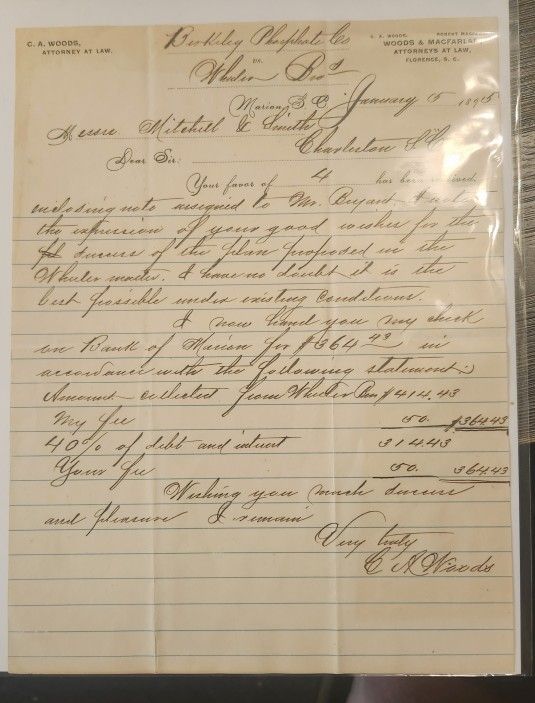 C. A. WOODS,
ATTORNEY AT LAW.
C. A. WOODS, ROBERT MACFARLAN
WOODS & MACFARLAN
ATTORNEYS AT LAW,
FLORENCE, S. C.
Berkeley Phosphate Co
vs.
Wheeler Bros
Marion, S. C. January 5 1895
Messrs Mitchell & Smith
Charleston S.C.
Dear Sir:
Your favor of 4 has been received
enclosing note assigned to Mr. Bryant. I note
the expression of your good wishes for the
success of the plan proposed in the
Wheeler matter. I have no doubt it is the
best possible under existing conditions.
I now hand you my check
on Bank of Marion for $364 43 in
accordance with the following statement:
Amount collected from Wheeler Bros $414.43
My fee 50. $364.43
40% of debt and interest 314.43
Your fee 50. 364.43
Wishing you much success
and pleasure I remain
Very truly
C A Woods